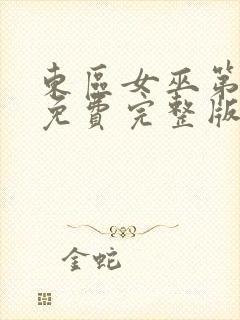 東區女巫第
免費完整版
金蛇